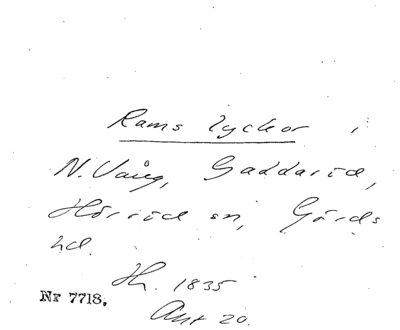 Rams lyckor i
N. Vång, Gaddaröd,
Hörröd sn, Gärds
hd.
Hh. 1835
Nr 7718.
Akt 20.